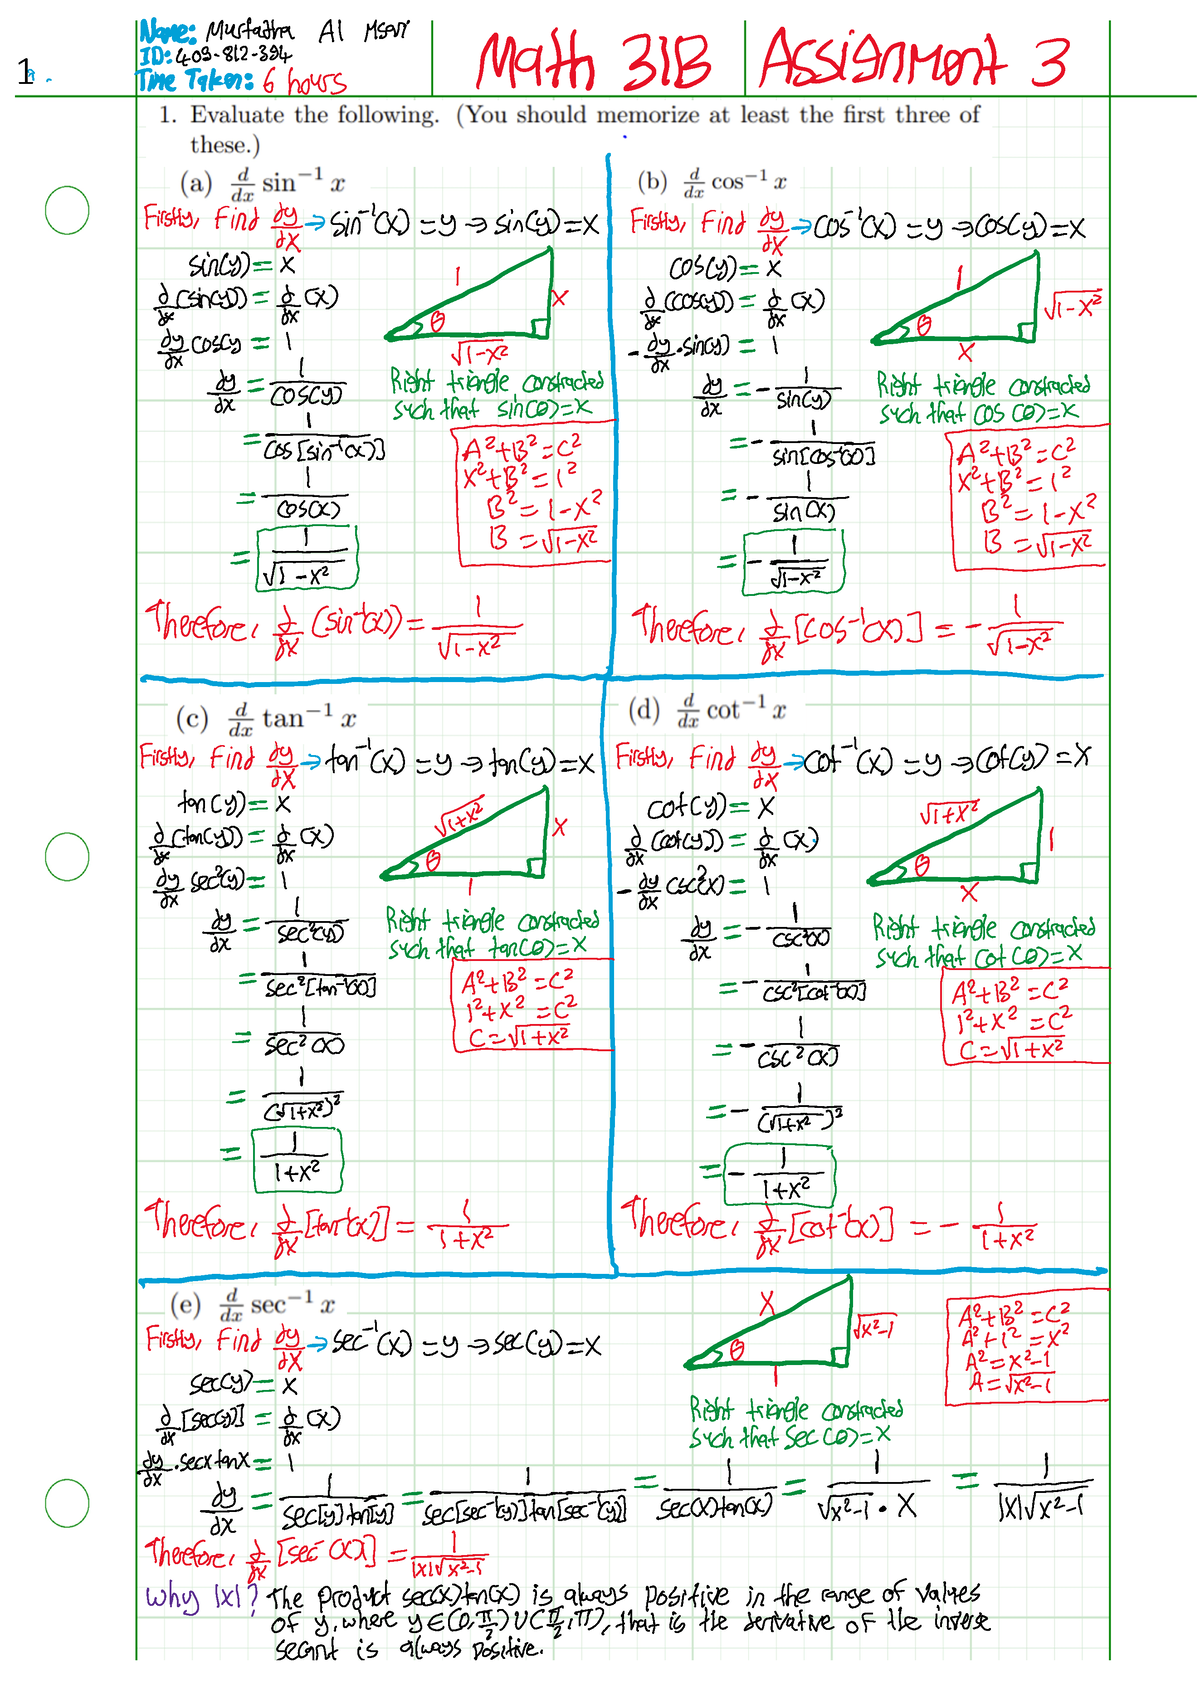 Name: Murtadha Al Msawi
ID: 409-812-394
Time Taken: 6 hours
Math 31B
Assignment 3
1.
1. Evaluate the following. (You should memorize at least the first three of
these.)
(a) d/dx sin⁻¹ x
Firstly, Find dy/dx → sin⁻¹(x) = y ⇒ sin(y) = x
sin(y) = x
d/dx (sin(y)) = d/dx (x)
dy/dx cos(y) = 1
dy/dx = 1/cos(y)
= 1/cos[sin⁻¹(x)]
= 1/cos(x)
= 1/√1-x²
1
x
θ
√1-x²
Right triangle constracted
such that sin(θ)=x
A²+B²=C²
x²+B²=1²
B²=1-x²
B=√1-x²
Therefore, d/dx (sin⁻¹(x)) = 1/√1-x²
(b) d/dx cos⁻¹ x
Firstly, Find dy/dx → cos⁻¹(x) = y ⇒ cos(y) = x
cos(y) = x
d/dx (cos(y)) = d/dx (x)
- dy/dx · sin(y) = 1
dy/dx = - 1/sin(y)
= - 1/sin[cos⁻¹(x)]
= - 1/sin(x)
= - 1/√1-x²
1
√1-x²
θ
x
Right triangle constracted
such that cos(θ)=x
A²+B²=C²
x²+B²=1²
B²=1-x²
B=√1-x²
Therefore, d/dx [cos⁻¹(x)] = - 1/√1-x²
(c) d/dx tan⁻¹ x
Firstly, Find dy/dx → tan⁻¹(x) = y ⇒ tan(y) = x
tan(y) = x
d/dx (tan(y)) = d/dx (x)
dy/dx sec²(y) = 1
dy/dx = 1/sec²(y)
= 1/sec²[tan⁻¹(x)]
= 1/sec²(x)
= 1/(√1+x²)²
= 1/1+x²
√1+x²
x
θ
1
Right triangle constracted
such that tan(θ)=x
A²+B²=C²
1²+x²=C²
C=√1+x²
Therefore, d/dx [tan⁻¹(x)] = 1/1+x²
(d) d/dx cot⁻¹ x
Firstly, Find dy/dx → cot⁻¹(x) = y ⇒ cot(y) = x
cot(y) = x
d/dx (cot(y)) = d/dx (x)
- dy/dx csc²(x) = 1
dy/dx = - 1/csc²(x)
= - 1/csc²[cot⁻¹(x)]
= - 1/csc²(x)
= - 1/(√1+x²)²
= - 1/1+x²
√1+x²
1
θ
x
Right triangle constracted
such that cot(θ)=x
A²+B²=C²
1²+x²=C²
C=√1+x²
Therefore, d/dx [cot⁻¹(x)] = - 1/1+x²
(e) d/dx sec⁻¹ x
Firstly, Find dy/dx → sec⁻¹(x) = y ⇒ sec(y) = x
sec(y) = x
d/dx [sec(y)] = d/dx (x)
dy/dx · secx tanx = 1
x
√x²-1
θ
1
Right triangle constracted
such that sec(θ)=x
A²+B²=C²
A²+1²=x²
A²=x²-1
A=√x²-1
dy/dx = 1/sec[y]tan[y] = 1/sec[sec⁻¹(y)]tan[sec⁻¹(y)] = 1/sec(x)tan(x) = 1/√x²-1 · x = 1/|x|√x²-1
Therefore, d/dx [sec⁻¹(x)] = 1/|x|√x²-1
Why |x|? The product sec(x)tan(x) is always positive in the range of values
of y, where y∈(0,π/2)∪(π/2,π), that is the derivative of the inverse
secant is always positive.